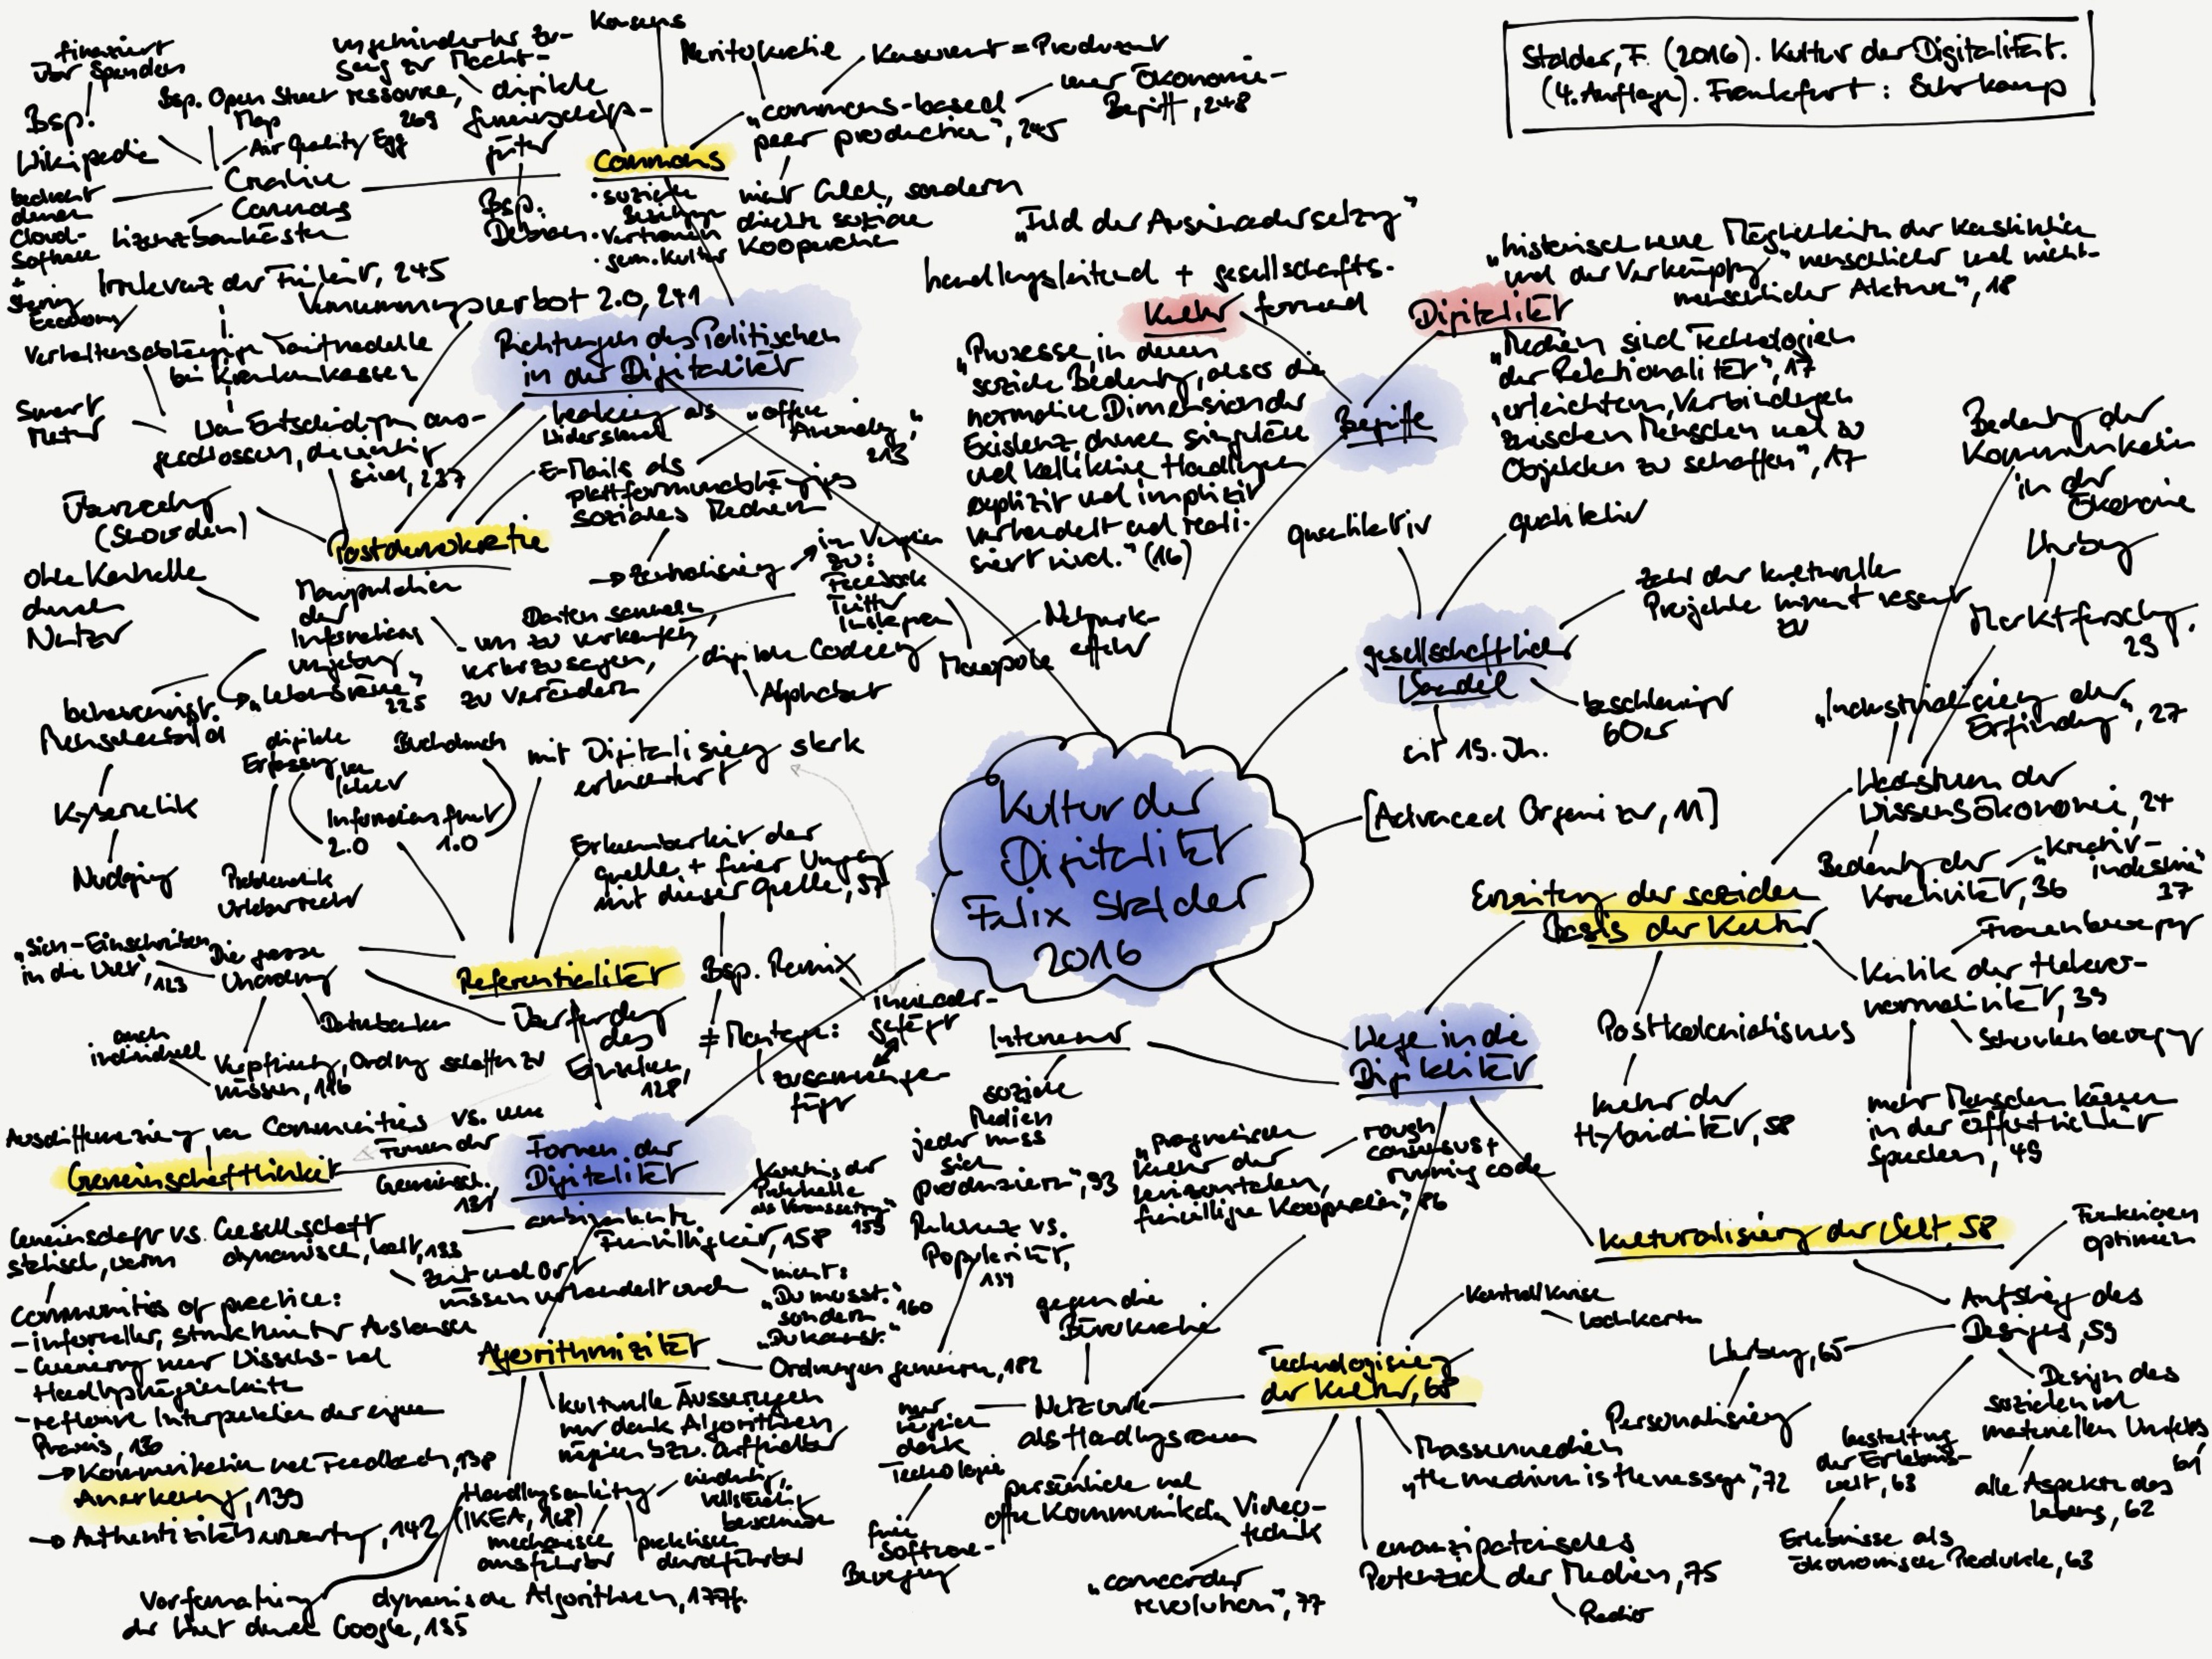 Stalder, F. (2016). Kultur der Digitalität.
(4. Auflage). Frankfurt: Suhrkamp
Kultur der
Digitalität
Felix Stalder
2016
Begriffe
Kultur
"Feld der Auseinandersetzung"
handlungsleitend + gesellschafts-
formend
"Prozesse, in denen
soziale Bedeutung, also die
normative Dimension der
Existenz, durch singuläre
und kollektive Handlungen
explizit und implizit
verhandelt und reali-
siert wird." (16)
Digitalität
"historisch neue Möglichkeiten der Konstitution
und der Verknüpfung menschlicher und nicht-
menschlicher Akteure", 18
"Medien sind Technologien
der Relationalität", 17
"erleichtern, Verbindungen
zwischen Menschen und zu
Objekten zu schaffen", 17
gesellschaftlicher
Wandel
quantitativ
qualitativ
Zahl der kulturellen
Projekte nimmt rasant
zu
beschleunigt
60er
seit 19. Jh.
[Advanced Organizer, 11]
Wege in die
Digitalität
Erweiterung der sozialen
Basis der Kultur
Wachstum der
Wissensökonomie, 24
Bedeutung der
Kommunikation
in der
Ökonomie
Werbung
Marktforschung,
29
"Industrialisierung der
Erfindung", 27
Bedeutung der
Kreativität, 36
"Kreativ-
industrie"
37
Kritik der Hetero-
normativität, 39
Frauenbewegung
Schwulenbewegung
mehr Menschen können
in der Öffentlichkeit
sprechen, 49
Postkolonialismus
Kultur der
Hybridität, 58
Kulturalisierung der Welt, 58
Aufstieg des
Designs, 59
Funktionen
optimieren
Werbung, 65
Personalisierung
Design des
sozialen und
materiellen Umfelds,
61
alle Aspekte des
Lebens, 62
Gestaltung
der Erlebnis-
welt, 63
Erlebnisse als
ökonomische Produkte, 63
Technologisierung
der Kultur, 68
Kontrollkrise
Lochkarten
Massenmedien
"the medium is the message", 72
emanzipatorisches
Potenzial der Medien, 75
Radio
Video-
technik
"camcorder
revolution", 77
Netzwerk
als Handlungsraum
gegen die
Bürokratie
nur
möglich
dank
Technologie
freie
Software-
Bewegung
persönliche und
offene Kommunikation
rough
consensus +
running code
"pragmatische
Kultur der
horizontalen,
freiwilligen Kooperation", 86
Internet
soziale
Medien
jeder muss
sich
"produzieren", 93
Formen der
Digitalität
Referentialität
mit Digitalisierung stark
erleichtert
digitale Codierung
Alphabet
Erkennbarkeit der
Quelle + freier Umgang
mit dieser Quelle, 97
Bsp. Remix
ineinander-
gefügt
≠ Montage:
zusammenge-
fügt
Überforderung
des
Einzelnen,
128
Die grosse
Unordnung
"Sich-Einschreiben
in die Welt", 123
Datenbanken
Verpflichtung, Ordnung schaffen zu
müssen, 116
auch
individuell
Informationsflut
2.0
1.0
Buchdruck
digitale
Erfassung von
Problematik
Urheberrecht
Gemeinschaftlichkeit
Ausdifferenzierung von Communities vs. neue
Formen der
Gemeinsch.
131
Gemeinschaft vs. Gesellschaft
statisch, warm
dynamisch, kalt, 133
Zeit und Ort
müssen verhandelt werden
Communities of practice:
- informeller, strukturierter Austausch
- Generierung neuer Wissens- und
Handlungsmöglichkeiten
- reflexive Interpretation der eigenen
Praxis, 136
→ Kommunikation und Feedback, 138
Anerkennung, 139
→ Authentizitätserwartung, 142
ambivalente
Freiwilligkeit, 158
Kenntnis der
Protokolle
als Voraussetzung"
159
nicht:
"Du musst."
sondern
"Du kannst."
160
Algorithmizität
Ordnungen generieren, 182
Relevanz vs.
Popularität,
kulturelle Äusserungen
nur dank Algorithmen
möglich bzw. auffindbar
Handlungsanleitung
(IKEA, 168)
eindeutig,
vollständig
beschrieben
mechanisch
ausführbar
praktisch
durchführbar
dynamische Algorithmen, 177f.
Vorformatierung
der Welt durch Google, 185
Richtungen des Politischen
in der Digitalität
Postdemokratie
Vermummungsverbot 2.0, 241
Leaking als
Widerstand
"offene
Anomalie",
213
E-Mails als
plattformunabhängiges
soziales Medium
→ Zentralisierung
im Vergleich
zu:
Facebook
Twitter
Instagram
Monopole
Netzwerk-
effekt
Daten sammeln,
um zu verkaufen,
vorherzusagen,
zu verändern
Manipulation
der
Informations-
umgebung
→ "Lebensräume"
225
ohne Kontrolle
durch
Nutzer
behaviorist.
Menschenbild
Kybernetik
Nudging
Überwachung
(Snowden)
von Entscheidungen aus-
geschlossen, die wichtig
sind, 237
Smart
Meter
verhaltensabhängige Tarifmodelle
bei Krankenkassen
Irrelevanz der Freiheit, 245
Commons
· soziale
Beziehungen
· Vertrauen
· gem. Kultur
Konsens
Meritokratie
Konsument = Produzent
"commons-based
peer production", 245
neuer Ökonomie-
Begriff, 248
nicht Geld, sondern
direkte soziale
Kooperation
digitale
Gemeinschafts-
güter
Bsp.
Debian
ungehinderter Zu-
gang zur Macht-
ressource,
269
Creative
Commons
Lizenzbaukästen
Bsp. Open Street
Map
Air Quality Egg
Bsp.
Wikipedia
finanziert
über Spenden
bedroht
durch
Cloud-
Software
+
Sharing
Economy